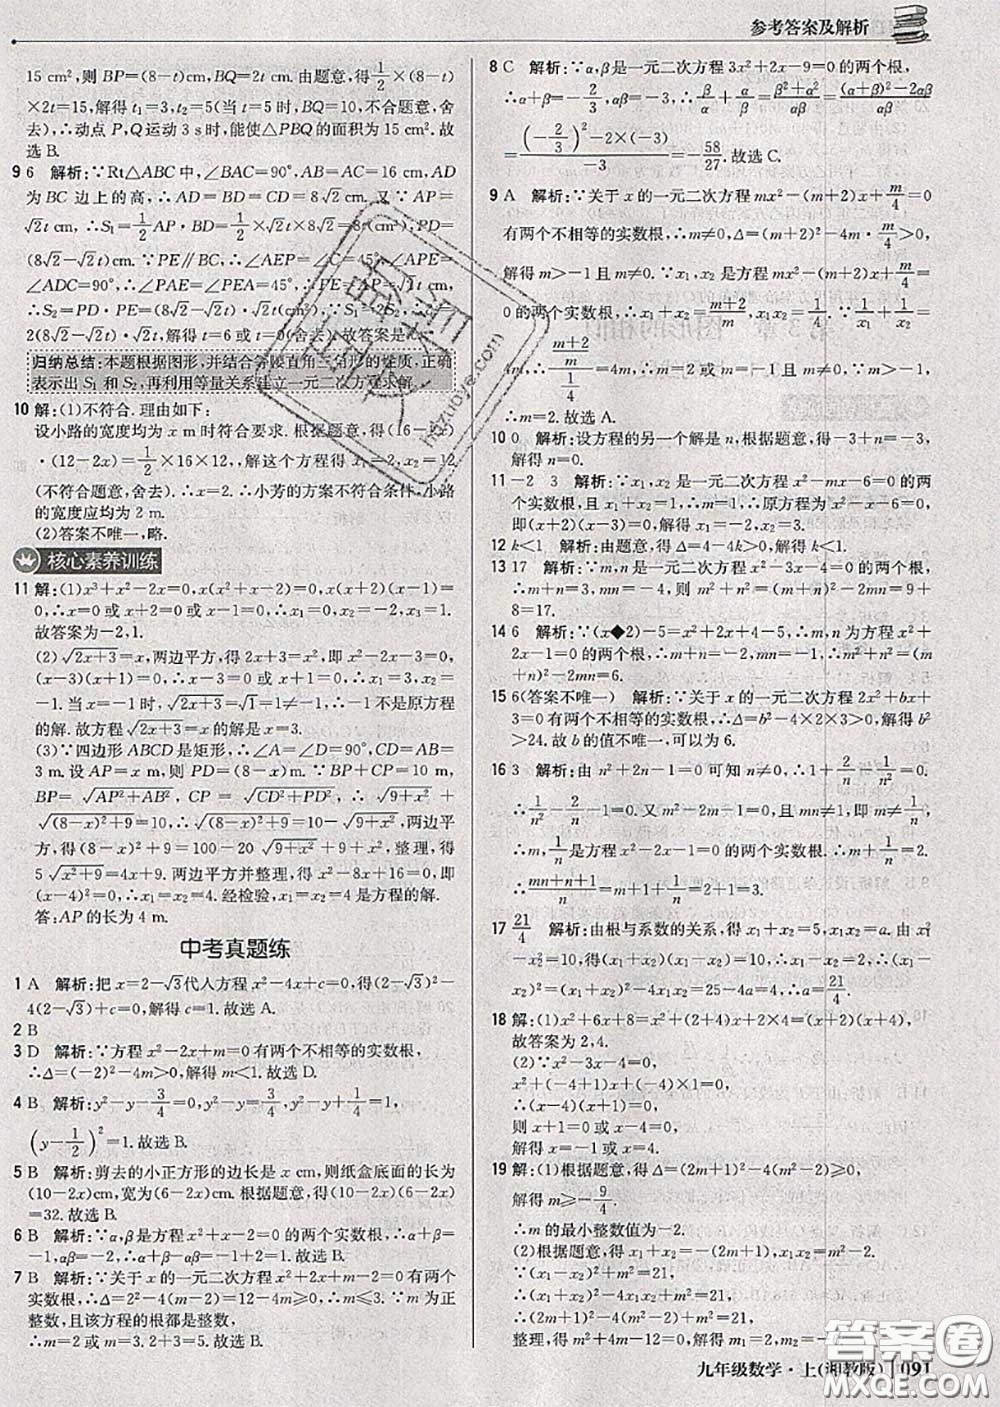 参考答案及解析
15 cm²,则 BP=(8-t)cm,BQ=2t cm. 由题意,得 1/2 ×(8-t)
×2t=15,解得 t₁=3,t₂=5(当 t=5 时,BQ=10,不合题意,舍
去),∴动点 P,Q 运动 3 s 时,能使△PBQ 的面积为 15 cm². 故
选 B.
9 6 解析:∵Rt△ABC 中,∠BAC=90°,AB=AC=16 cm,AD
为 BC 边上的高,∴AD=BD=CD=8√2 cm. 又∵AP=
√2t cm,∴S₁=1/2 AP·BD=1/2×√2t×8√2=8t,PD=
(8√2-√2t)cm. ∵PE∥BC,∴∠AEP=∠C=45°,∠APE=
∠ADC=90°,∴∠PAE=∠PEA=45°,∴PE=AP=√2t cm,
∴S₂=PD·PE=(8√2-√2t)·√2t. ∵S₁=2S₂,∴8t=
2(8√2-√2t)·√2t,解得 t=6 或 t=0(舍去). 故答案是 6.
归纳总结:本题根据图形,并结合等腰直角三角形的性质,正确
表示出 S₁ 和 S₂,再利用等量关系建立一元二次方程求解.
10 解:(1)不符合. 理由如下:
设小路的宽度均为 x m 时符合要求. 根据题意,得(16-2x)
·(12-2x)=1/2×16×12,解这个方程得 x₁=2,x₂=12
(不符合题意,舍去). ∴x=2. ∴小芳的方案不符合条件,小路
的宽度应均为 2 m.
(2)答案不唯一,略.
核心素养训练
11 解:(1)x³+x²-2x=0,x(x²+x-2)=0,x(x+2)(x-1)=
0,∴x=0 或 x+2=0 或 x-1=0,∴x₁=0,x₂=-2,x₃=1.
故答案为-2,1.
(2)√(2x+3)=x,两边平方,得 2x+3=x²,即 x²-2x-3=0,
(x-3)(x+1)=0,∴x-3=0 或 x+1=0,∴x₁=3,x₂=
-1. 当 x=-1 时,√(2x+3)=√1=1≠-1,∴-1 不是原方程
的解. 故方程√(2x+3)=x 的解是 x=3.
(3)∵四边形 ABCD 是矩形,∴∠A=∠D=90°,CD=AB=
3 m. 设 AP=x m,则 PD=(8-x)m. ∵BP+CP=10 m,
BP=√(AP²+AB²),CP=√(CD²+PD²),∴√(9+x²)+
√((8-x)²+9)=10,∴√((8-x)²+9)=10-√(9+x²),两边平
方,得(8-x)²+9=100-20√(9+x²)+9+x²,整理,得
5√(x²+9)=4x+9. 两边平方并整理,得 x²-8x+16=0,即
(x-4)²=0,∴x=4. 经检验,x=4 是方程的解.
答:AP 的长为 4 m.
中考真题练
1 A 解析:把 x=2-√3代入方程 x²-4x+c=0,得(2-√3)²-
4(2-√3)+c=0,解得 c=1. 故选 A.
2 B
3 D 解析:∵方程 x²-2x+m=0 有两个不相等的实数根,
∴Δ=(-2)²-4m>0,解得 m<1. 故选 D.
4 B 解析:y²-y-3/4=0,y²-y=3/4,y²-y+1/4=1,
(y-1/2)²=1. 故选 B.
5 B 解析:剪去的小正方形的边长是 x cm,则纸盒底面的长为
(10-2x)cm,宽为(6-2x)cm. 根据题意,得(10-2x)(6-2x)
=32. 故选 B.
6 B 解析:∵α,β是方程 x²+x-2=0 的两个实数根,∴α+β=
-1,αβ=-2,∴α+β-αβ=-1+2=1. 故选 B.
7 B 解析:∵关于 x 的一元二次方程 x²+2x+m-2=0 有两个
实数根,∴Δ=2²-4(m-2)≥0,解得 m≤3. ∵m 为正
整数,且该方程的根都是整数,
∴m=2 或 m=3,2+3=5. 故选 B.
8 C 解析:∵α,β是一元二次方程 3x²+2x-9=0 的两个根,
∴α+β=-2/3,αβ=-3,∴β/α+α/β=(β²+α²)/αβ=((α+β)²-2αβ)/αβ
=((-2/3)²-2×(-3))/-3=-58/27. 故选 C.
9 A 解析:∵关于 x 的一元二次方程 mx²-(m+2)x+m/4=0
有两个不相等的实数根,∴m≠0,Δ=(m+2)²-4m·m/4>0,
解得 m>-1 且 m≠0. ∵x₁,x₂是方程 mx²-(m+2)x+m/4=
0 的两个实数根,∴x₁+x₂=(m+2)/m,x₁x₂=1/4. ∵1/x₁+1/x₂=4m,
∴((m+2)/m)/(1/4)=4m,∴m=2 或 m=-1. ∵m>-1,
∴m=2. 故选 A.
10 0 解析:设方程的另一个解是 n,根据题意,得-3+n=-3,
解得 n=0.
11 -2 3 解析:∵x₁,x₂是一元二次方程 x²-mx-6=0 的两
个实数根,且 x₁+x₂=1,∴m=1,∴原方程为 x²-x-6=0,
即(x+2)(x-3)=0,解得 x₁=-2,x₂=3.
12 k<1 解析:由题意,得Δ=4-4k>0,解得 k<1.
13 17 解析:∵m,n是一元二次方程 x²-3x-4=0 的两个根,
∴m+n=3,mn=-4,则 m²+n²=(m+n)²-2mn=9+
8=17.
14 6 解析:∵(x◆2)-5=x²+2x+4-5,∴m,n为方程 x²+
2x-1=0 的两个根,∴m+n=-2,mn=-1,∴m²+n²=(m+
n)²-2mn=6.
15 6(答案不唯一) 解析:∵关于 x 的一元二次方程 2x²+bx+
3=0 有两个不相等的实数根,∴Δ=b²-4×2×3>0,解得 b²
>24. 故 b 的值不唯一,可以为 6.
16 3 解析:由 n²+2n-1=0 可知 n≠0,∴1+2/n-1/n²=0,
∴1/n²-2/n-1=0. 又 m²-2m-1=0,且 mn≠1,即 m≠1/n,
∴m,1/n是方程 x²-2x-1=0 的两个根,∴m+1/n=2,
∴(mn+n+1)/n=m+1+1/n=2+1=3.
17 21/4 解析:由根与系数的关系,得 x₁+x₂=5,x₁x₂=a. 由 x₁²-
x₂²=10,得(x₁+x₂)(x₁-x₂)=10. ∵x₁+x₂=5,∴x₁-x₂=
2,∴(x₁-x₂)²=(x₁+x₂)²-4x₁x₂=25-4a=4,∴a=21/4.
18 解:(1)x²+6x+8=x²+(2+4)x+2×4=(x+2)(x+4),
故答案为 2,4.
(2)∵x²-3x-4=0,
x²+(-4+1)x+(-4)×1=0,
∴(x-4)(x+1)=0,
则 x+1=0 或 x-4=0,
解得 x=-1 或 x=4.
19 解:(1)根据题意,得Δ=(2m+1)²-4(m²-2)≥0,
解得 m≥-9/4,
∴m的最小整数值为-2.
(2)根据题意,得 x₁+x₂=-(2m+1),x₁x₂=m²-2,
∵(x₁-x₂)²+m²=21,
∴(x₁+x₂)²-4x₁x₂+m²=21,
∴(2m+1)²-4(m²-2)+m²=21,
整理,得 m²+4m-12=0,解得 m₁=2,m₂=-6.
九年级数学·上(湘教版) 091
答案圈
MXQE.COM
hdzuoye.com